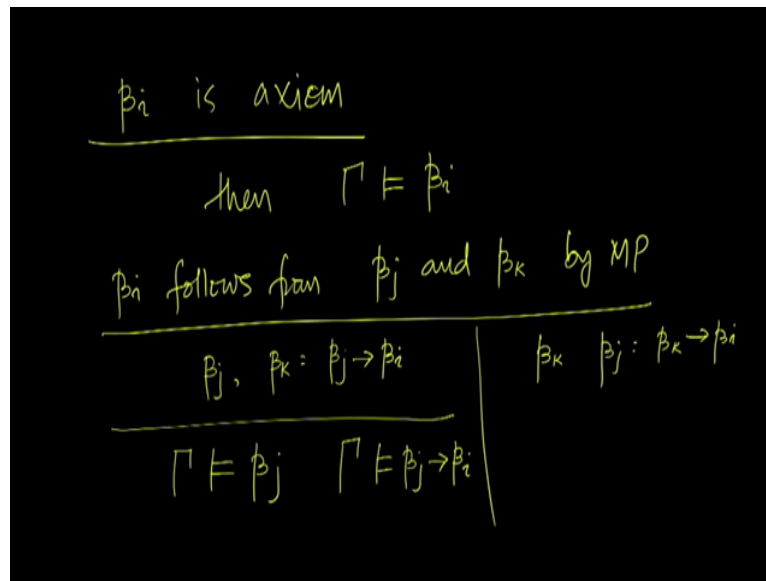 βi is axiom
then Γ ⊨ βi
βi follows from βj and βK by MP
βj, βK : βj → βi
βK βj : βK → βi
Γ ⊨ βj Γ ⊨ βj → βi